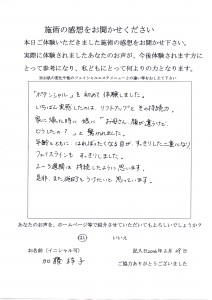 施術の感想をお聞かせください
本日ご体験いただきました施術の感想をお聞かせ下さい。
実際に体験されましたあなたのお声が、今後体験されます方に
とって参考になり、私どもにとって何よりの力となります。
「ポテンシャル」を初めて体験しました。
いちばん実感したのは、リフトアップとその持続力。
家に帰った時に娘に「お母さん、顔が違うけど、
どうしたの？」と驚かれました。
年齢とともに、はれぼったくなる目が、すっきりした二重になり、
フェイスラインもすっきりしました。
2〜3週間は持続したように思います。
是非、また、施術をうけたいと思っています。
あなたのお声を、ホームページ等で紹介させていただいてもよろしいでしょうか？
はい いいえ
お名前（イニシャル可） 記入日2016年2月29日
ご協力ありがとうございました